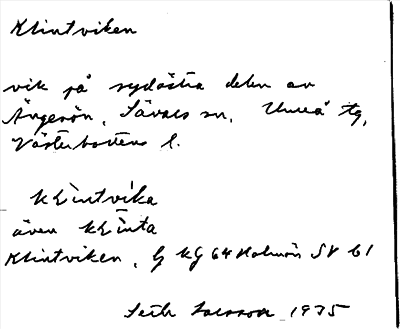 Klintviken
vik på sydöstra delen av
Ängesön, Sävars sn, Umeå tg,
Västerbottens l.
klintvika
även klinta
Klintviken, G kG 64 Holmön SV b1
1935